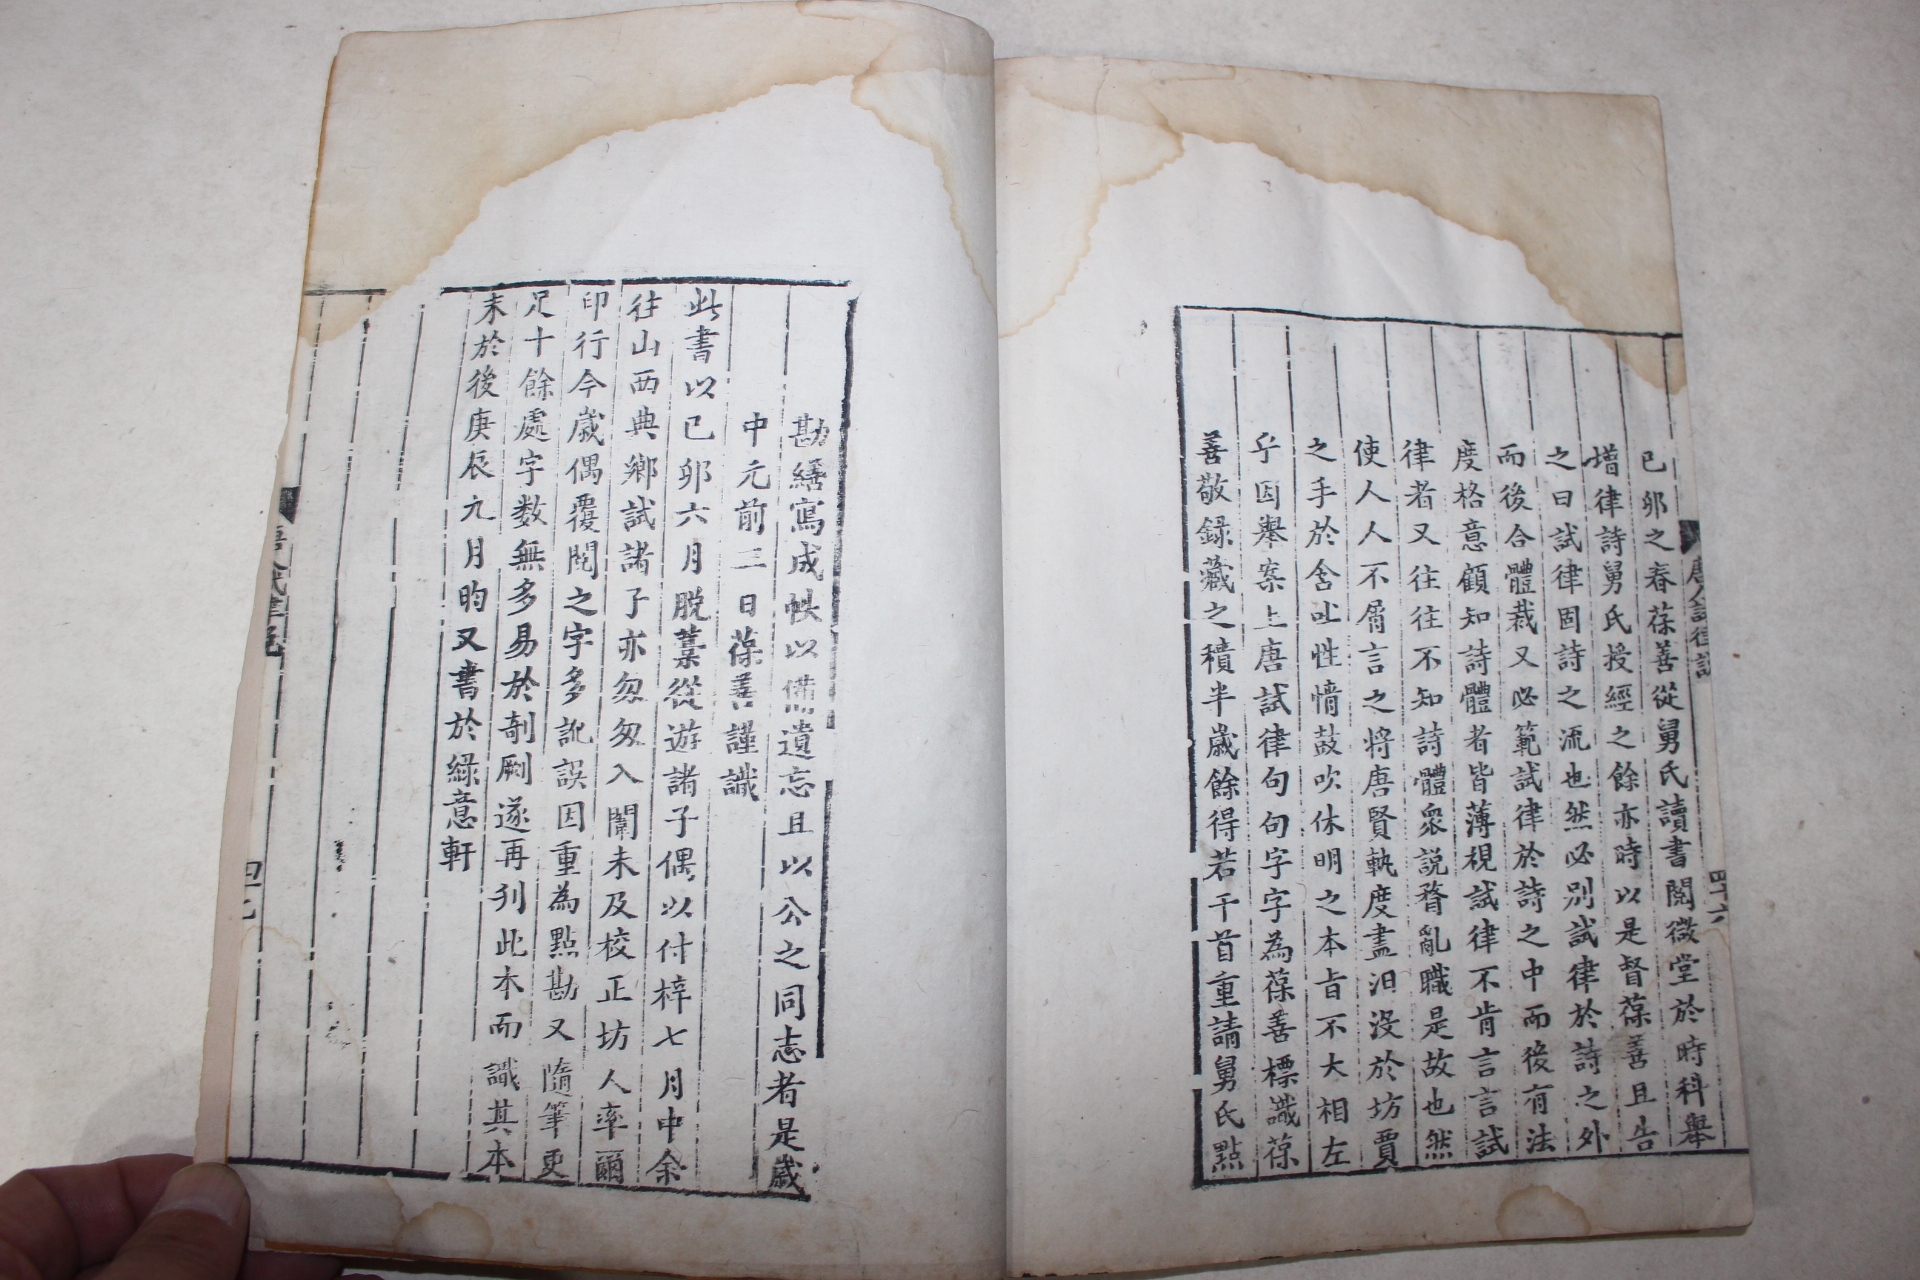 唐人試律說
四十六
己卯之春葆善從舅氏讀書閱微堂於時科舉
增律詩舅氏授經之餘亦時以是督葆善且告
之曰試律固詩之流也然必別試律於詩之外
而後合體裁又必範試律於詩之中而後有法
度格意顧知詩體者皆薄視試律不肯言言試
律者又往往不知詩體眾說瞀亂職是故也然
使人人不屑言之將唐賢執度盡汩沒於坊賈
之手於含吐性情鼓吹休明之本旨不大相左
乎因舉案上唐試律句句字字為葆善標識葆
善敬錄藏之積半歲餘得若干首重請舅氏點
勘繕寫成帙以備遺忘且以公之同志者是歲
中元前三日葆善謹識
此書以己卯六月脫藳從遊諸子偶以付梓七月中余
往山西典鄉試諸子亦匆匆入闈未及校正坊人率爾
印行今歲偶覆閱之字多訛誤因重為點勘又隨筆更
足十餘處字數無多易於剞劂遂再刋此本而識其本
末於後庚辰九月昀又書於綠意軒